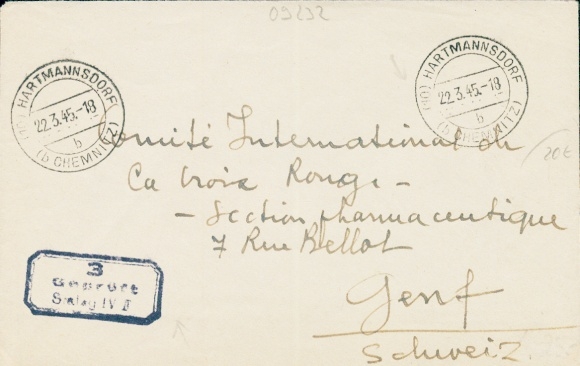 09292
(10) HARTMANNSDORF
22.3.45.-18
b
(b CHEMNITZ)
(10) HARTMANNSDORF
22.3.45.-18
b
(b CHEMNITZ)
20€
Comité International de
La Croix Rouge -
- Section pharmaceutique
7 Rue Bellot
Genf
Schweiz.
3
Geprüft
Stalag IV F